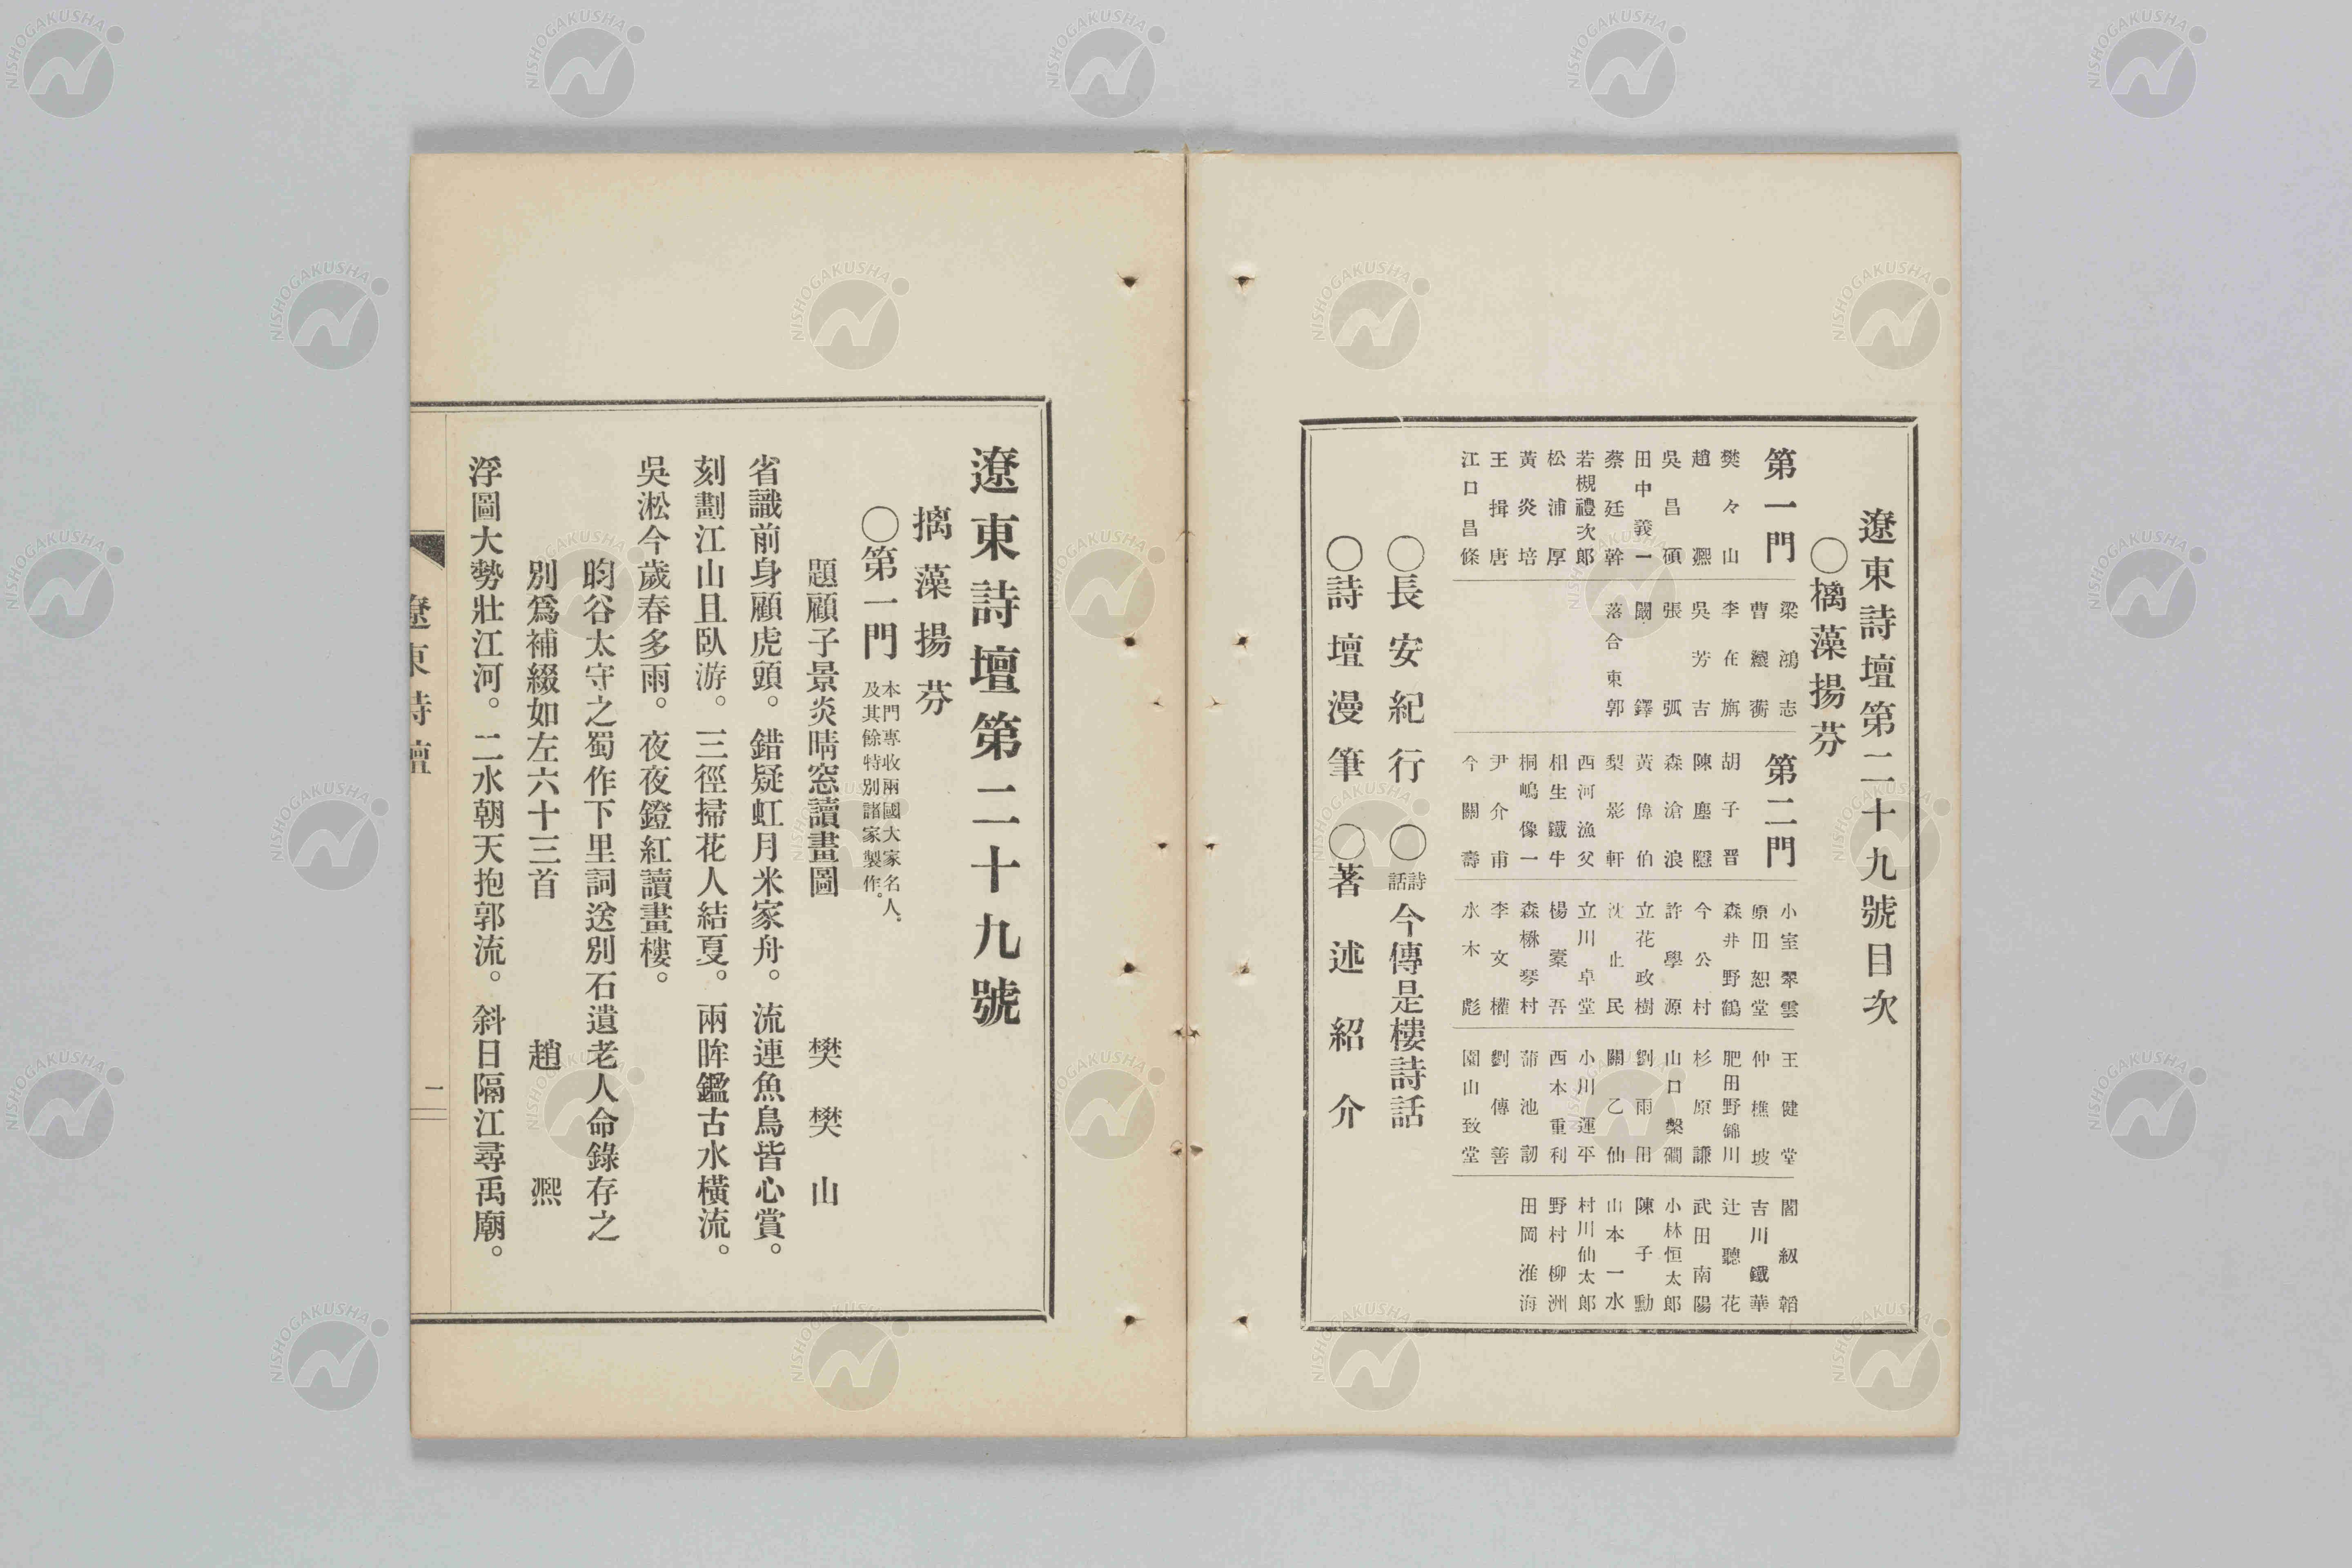 遼東詩壇第二十九號目次
○摛藻揚芬
第一門
樊々山
趙熈
吳昌碩
田中義一
蔡廷幹
若槻禮次郎
松浦厚
黃炎培
王揖唐
江口昌條
梁鴻志
曹纕蘅
李在旃
吳芳吉
張弧
闞鐸
落合東郭
第二門
胡子晋
陳塵隱
森滄浪
黃偉伯
梨影軒
西河漁父
相生鐵牛
桐嶋像一
尹介甫
今關壽
小室翠雲
原田恕堂
森井野鶴
今公村
許學源
立花政樹
沈止民
立川卓堂
楊槖吾
森楙琴村
李文權
水木彪
王健堂
仲樵坡
肥田野錦川
杉原謙
山口槃礀
劉雨田
關乙仙
小川運平
西本重利
蒲池訒
劉傳善
園山致堂
閣級韜
吉川鐵華
辻聽花
武田南陽
小林恒太郎
陳子勳
山本一水
村川仙太郎
野村柳洲
田岡淮海
○長安紀行　○詩話 今傳是樓詩話
○詩壇漫筆　○著述紹介
遼東詩壇第二十九號
摛藻揚芬
○第一門 本門專收兩國大家名人。及其餘特別諸家製作。
題顧子景炎晴窓讀畫圖　樊樊山
省識前身顧虎頭。錯疑虹月米家舟。流連魚鳥皆心賞。
刻劃江山且臥游。三徑掃花人結夏。兩眸鑑古水橫流。
吳淞今歲春多雨。夜夜鐙紅讀畫樓。
昀谷太守之蜀作下里詞送別石遺老人命錄存之
別爲補綴如左六十三首　趙熈
浮圖大勢壯江河。二水朝天抱郭流。斜日隔江尋禹廟。
遼東詩壇
一
NISHOGAKUSHA